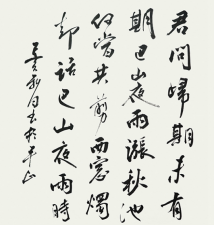 君问归期未有
期巴山夜雨涨秋池
何当共剪西窗烛
却话巴山夜雨时